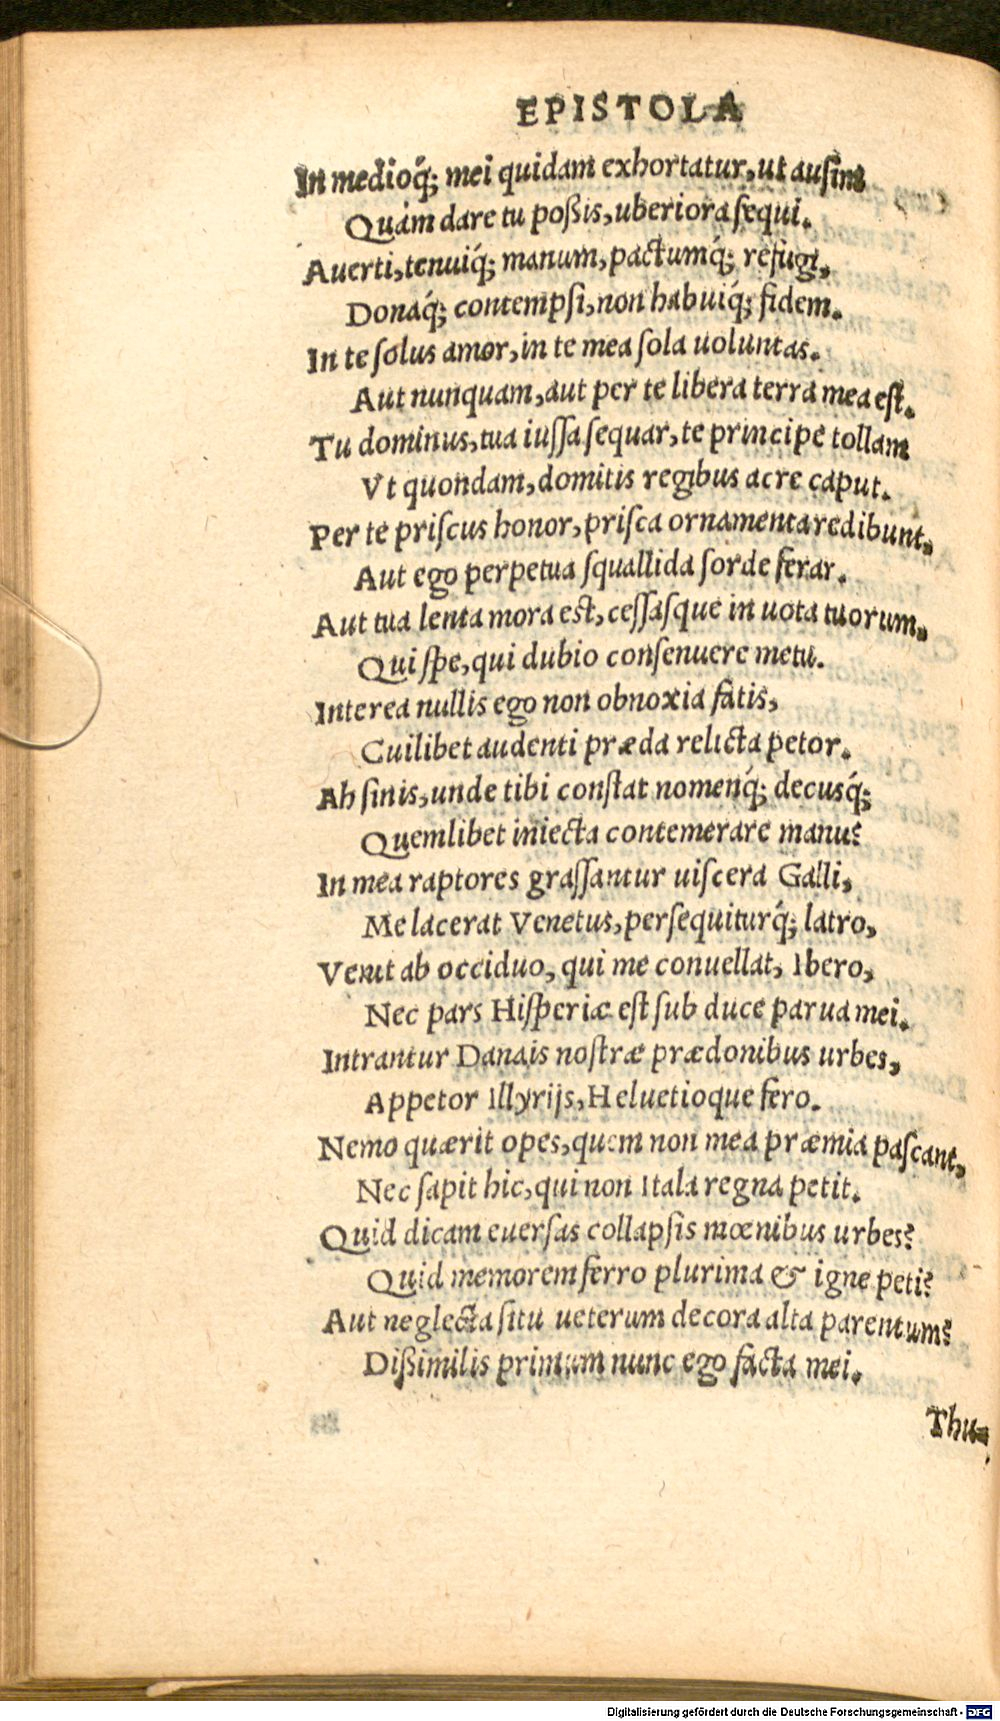 EPISTOLA
In medioq́; mei quidam exhortatur, ut ausim
Quàm dare tu poßis, uberiora sequi.
Auerti, tenuiq́; manum, pactumq́; refugi,
Donaq́; contempsi, non habuiq́; fidem.
In te solus amor, in te mea sola uoluntas.
Aut nunquam, aut per te libera terra mea est.
Tu dominus, tua iussa sequar, te principe tollam
Vt quondam, domitis regibus acre caput.
Per te priscus honor, prisca ornamenta redibunt,
Aut ego perpetua squallida sorde ferar.
Aut tua lenta mora est, cessasque in uota tuorum,
Qui spe, qui dubio consenuere metu.
Interea nullis ego non obnoxia fatis,
Cuilibet audenti præda relicta petor.
Ah sinis, unde tibi constat nomenq́; decusq́;
Quemlibet iniecta contemerare manu?
In mea raptores grassantur uiscera Galli,
Me lacerat Venetus, persequiturq́; latro,
Venit ab occiduo, qui me conuellat, Ibero,
Nec pars Hisperiæ est sub duce parua mei.
Intrantur Danais nostræ prædonibus urbes,
Appetor Illyrijs, Heluetioque fero.
Nemo quærit opes, quem non mea præmia pascant,
Nec sapit hic, qui non Itala regna petit.
Quid dicam euersas collapsis mœnibus urbes?
Quid memorem ferro plurima & igne peti?
Aut neglecta situ ueterum decora alta parentum?
Dißimilis primum nunc ego facta mei.
Thu-
Digitalisierung gefördert durch die Deutsche Forschungsgemeinschaft - DFG